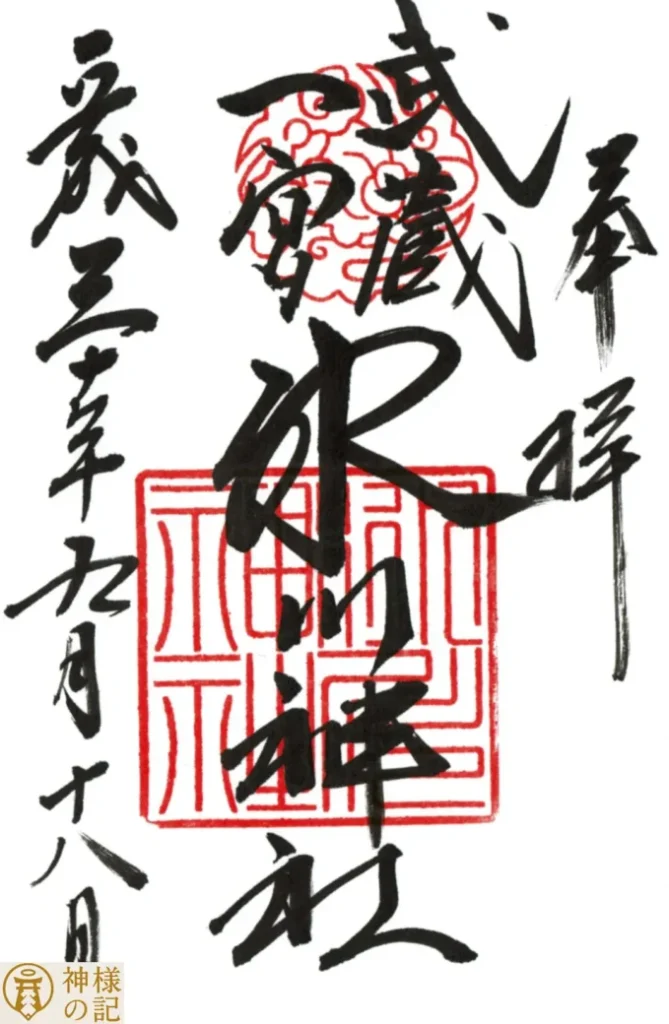 奉拝
武蔵
一宮
氷川神社
平成三十年九月十八日
神様
の記